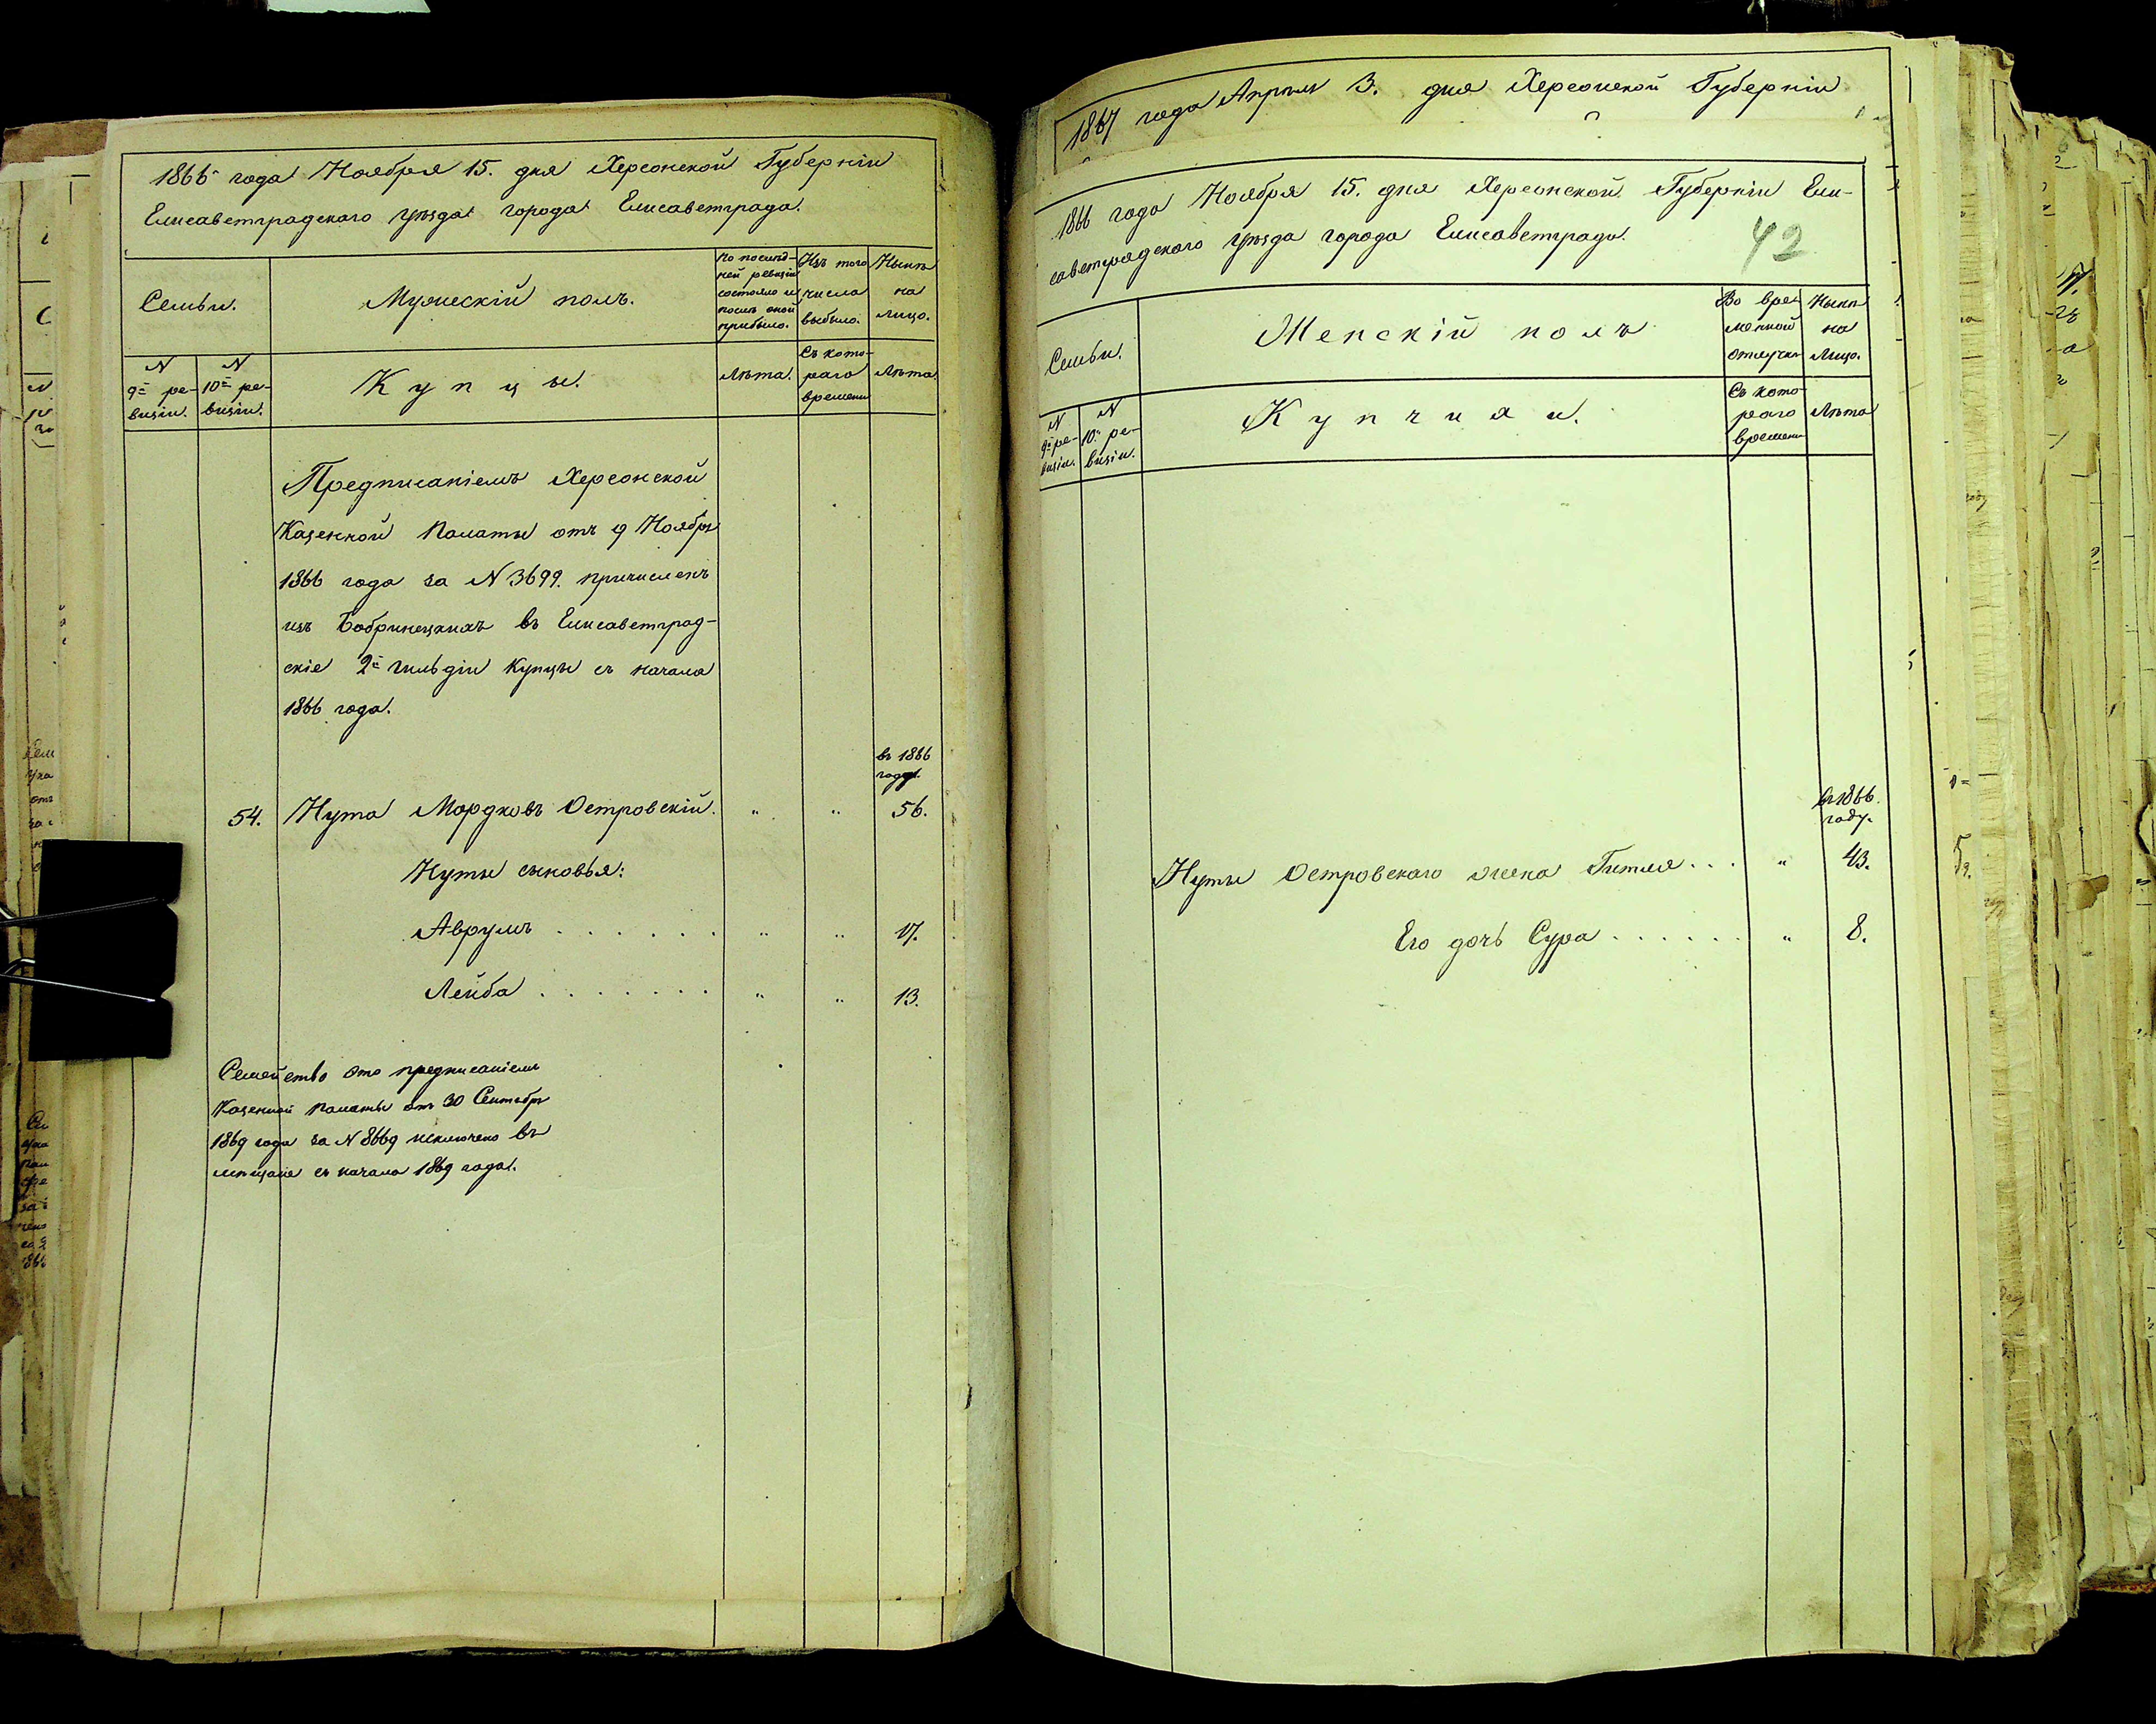 1866 года Ноября 15. дня Херсонской Губерніи
Елисаветградскаго уѣзда города Елисаветграда.
Семьи.
Мужескій полъ.
По послѣд-
ней ревизіи
состояло и
послѣ оной
прибыло.
Изъ того
числа
выбыло.
Нынѣ
на
лицо.
N
9й ре-
визіи.
N
10й ре-
визіи.
Купцы.
Лѣта.
Съ кото-
раго
времени
Лѣта.
Предписаніемъ Херсонской
Казенной Палаты отъ 9 Ноября
1866 года за N 3699. причисленъ
изъ Бобринецкихъ въ Елисаветград-
скіе 2й гильдіи Купцы съ начала
1866 года.
въ 1866
году.
54. Нута Мордковъ Островскій. " " 56.
Нуты сыновья:
Аврумъ . . . . . . . " " 17.
Лейба . . . . . . . " " 13.
Семейство это предписаніемъ
Казенной Палаты отъ 30 Сентября
1869 года за N 8669 исключено въ
мѣщане съ начала 1869 года.
1867 года Апрѣля 3. дня Херсонской Губерніи
1866 года Ноября 15. дня Херсонской Губерніи Ели-
саветградскаго уѣзда города Елисаветграда.
42
Семьи.
Женскій полъ
Во вре-
менной
отлучкѣ
Нынѣ
на
Лицо.
N
9й ре-
визіи.
N
10й ре-
визіи.
Купчихи.
Съ кото-
раго
времени
Лѣта
въ 1866.
году.
Нуты Островскаго жена Гитля . . . " 43.
Его дочь Сура . . . . . . " 8.